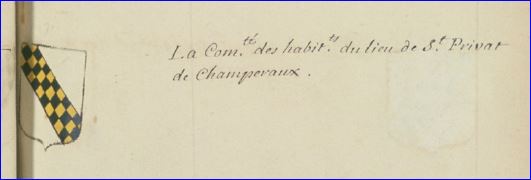 La Com.té des habit.ts du lieu de S.t Privat
de Champeraux.